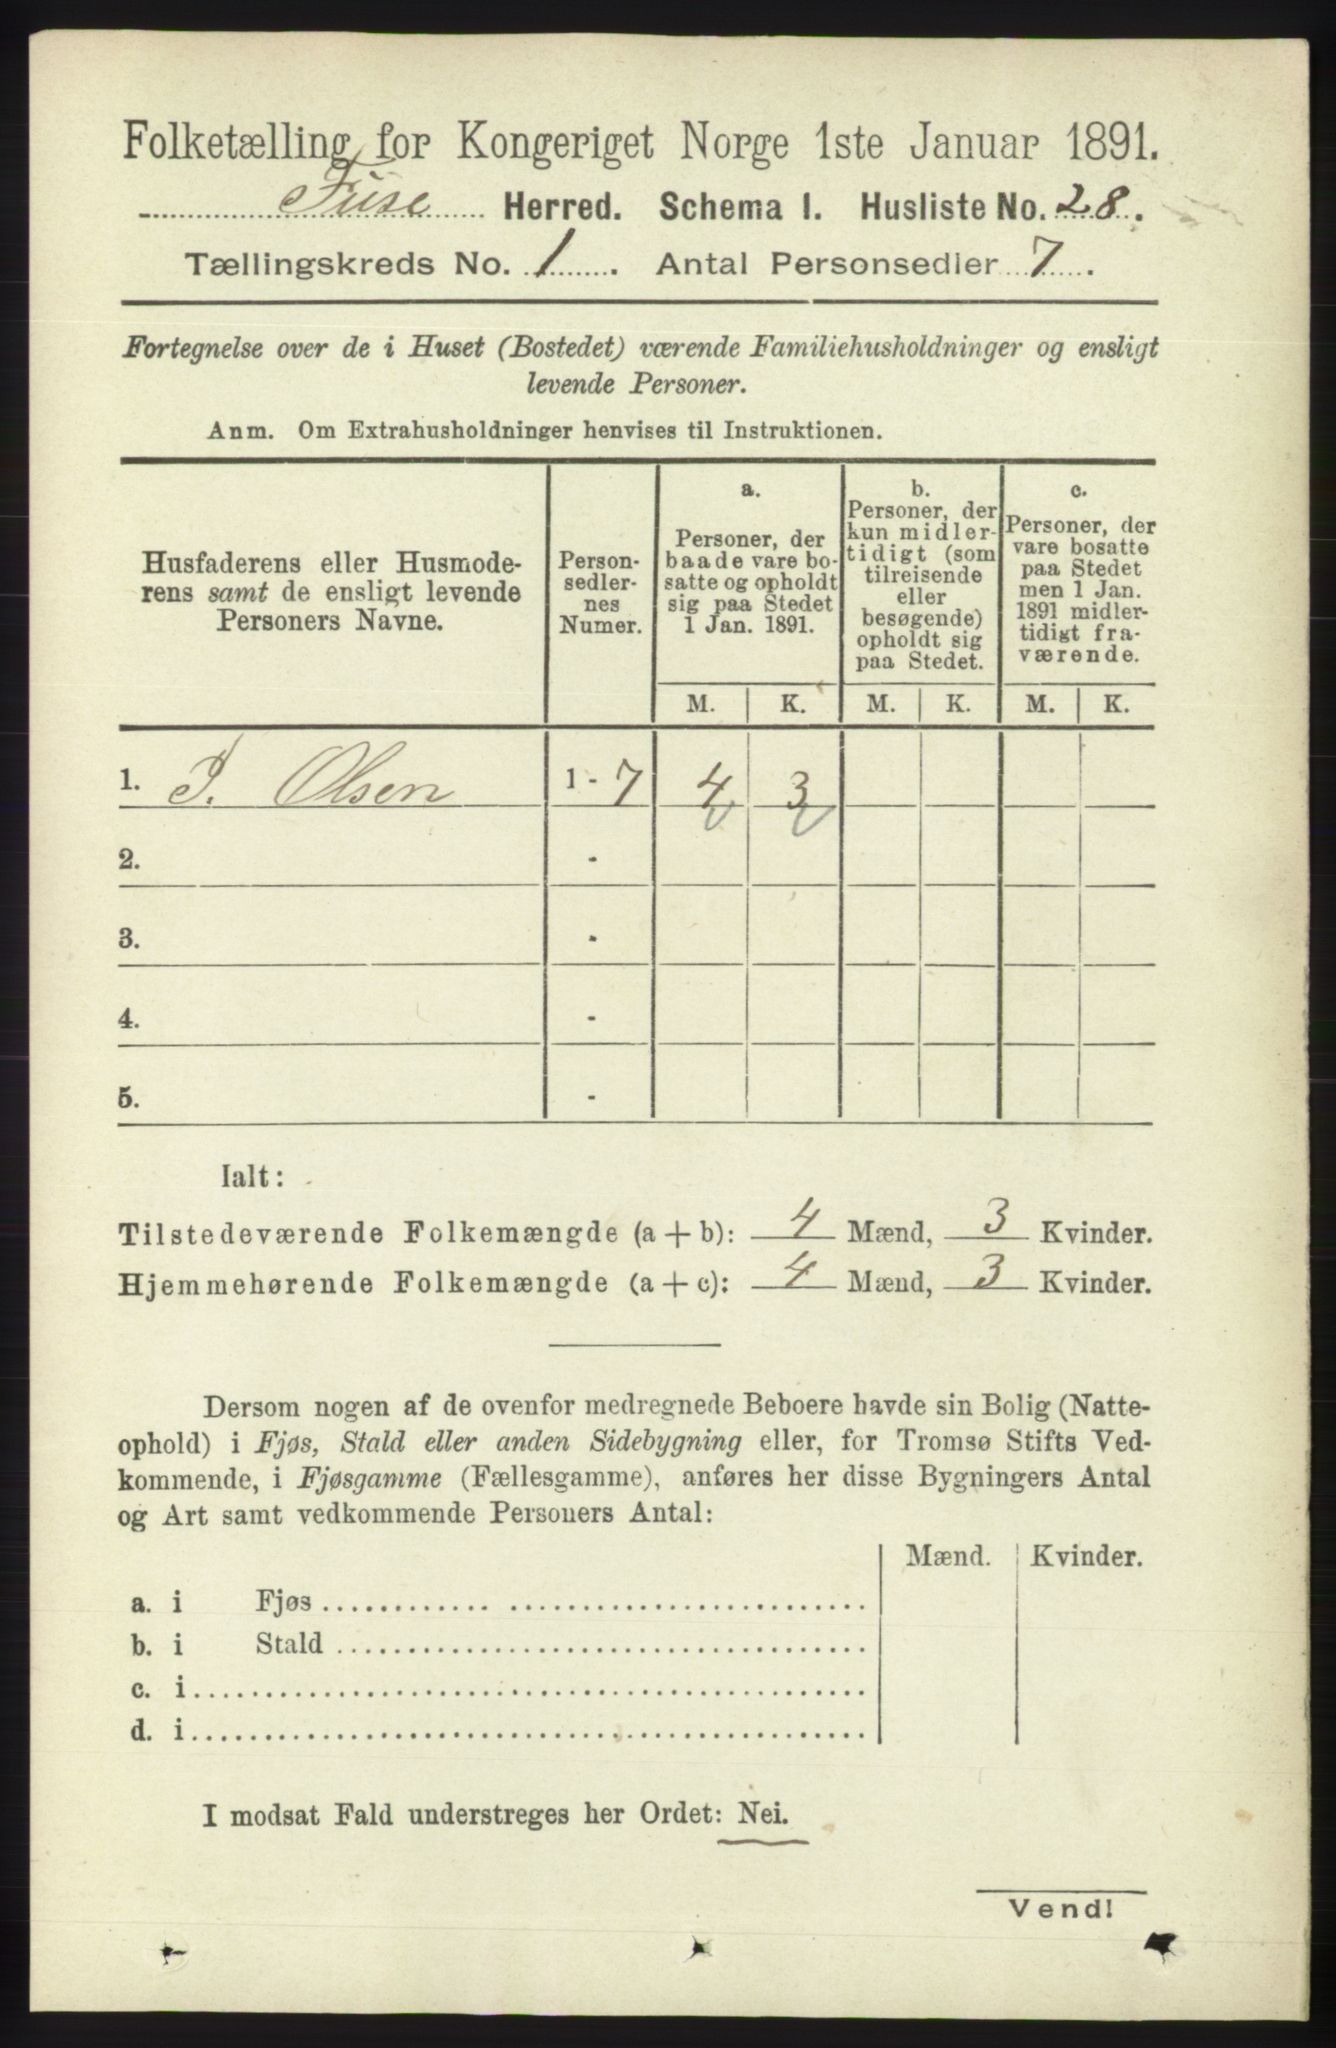 Folketælling for Kongeriget Norge 1ste Januar 1891.
Fuse Herred. Schema I. Husliste No. 28.
Tællingskreds No. 1. Antal Personsedler 7.
Fortegnelse over de i Huset (Bostedet) værende Familiehusholdninger og ensligt
levende Personer.
Anm. Om Extrahusholdninger henvises til Instruktionen.
Husfaderens eller Husmode-
rens samt de ensligt levende
Personers Navne.
Person-
sedler-
nes
Numer.
a.
Personer, der
baade vare bo-
satte og opholdt
sig paa Stedet
1 Jan. 1891.
b.
Personer, der
kun midler-
tidigt (som
tilreisende
eller
besøgende)
opholdt sig
paa Stedet.
c.
Personer, der
vare bosatte
paa Stedet
men 1 Jan.
1891 midler-
tidigt fra-
værende.
M. K. M. K. M. K.
1. J. Olsen 1 - 7 4 3
2. -
3. -
4. -
5. -
Ialt:
Tilstedeværende Folkemængde (a + b): 4 Mænd, 3 Kvinder.
Hjemmehørende Folkemængde (a + c): 4 Mænd, 3 Kvinder.
Dersom nogen af de ovenfor medregnede Beboere havde sin Bolig (Natte-
ophold) i Fjøs, Stald eller anden Sidebygning eller, for Tromsø Stifts Ved-
kommende, i Fjøsgamme (Fællesgamme), anføres her disse Bygningers Antal
og Art samt vedkommende Personers Antal:
Mænd. Kvinder.
a. i Fjøs
b. i Stald
c. i
d. i
I modsat Fald understreges her Ordet: Nei.
Vend!